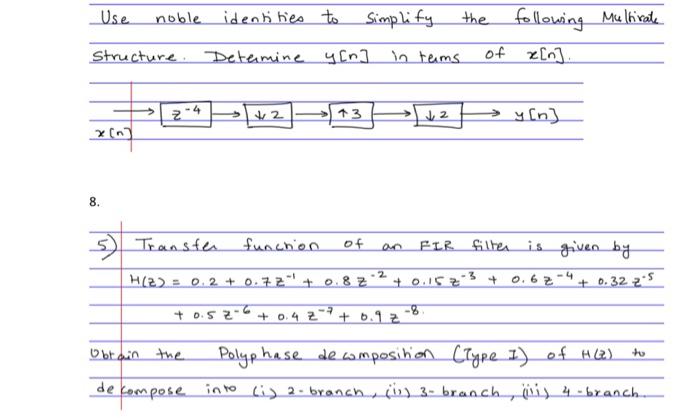 Use noble identities to Simplify the following Multirate
structure. Determine y[n] in terms of x[n].
z⁻⁴ ↓2 ↑3 ↓2 y[n]
x[n]
8.
5) Transfer function of an FIR filter is given by
H(z) = 0.2 + 0.7z⁻¹ + 0.8z⁻² + 0.15z⁻³ + 0.6z⁻⁴ + 0.32z⁻⁵
+ 0.5z⁻⁶ + 0.4z⁻⁷ + 0.9z⁻⁸.
Obtain the Polyphase decomposition (Type I) of H(z) to
decompose into (i) 2-branch, (ii) 3-branch, (iii) 4-branch.